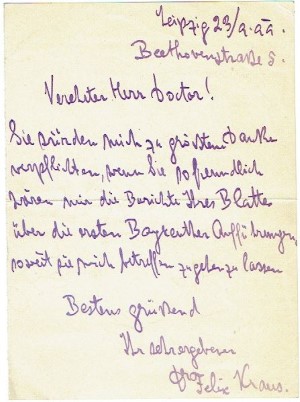 Leipzig 23/9.99.
Beethovenstraße 8.
Verehrter Herr Doctor!
Sie würden mich zu größtem Danke
verpflichten, wenn Sie so freundlich
wären mir die Berichte Ihres Blattes
über die ersten Bayreuther Aufführungen,
soweit sie mich betreffen zugehen zu lassen
Bestens grüßend
Ihr sehr ergebener
Felix Kraus.